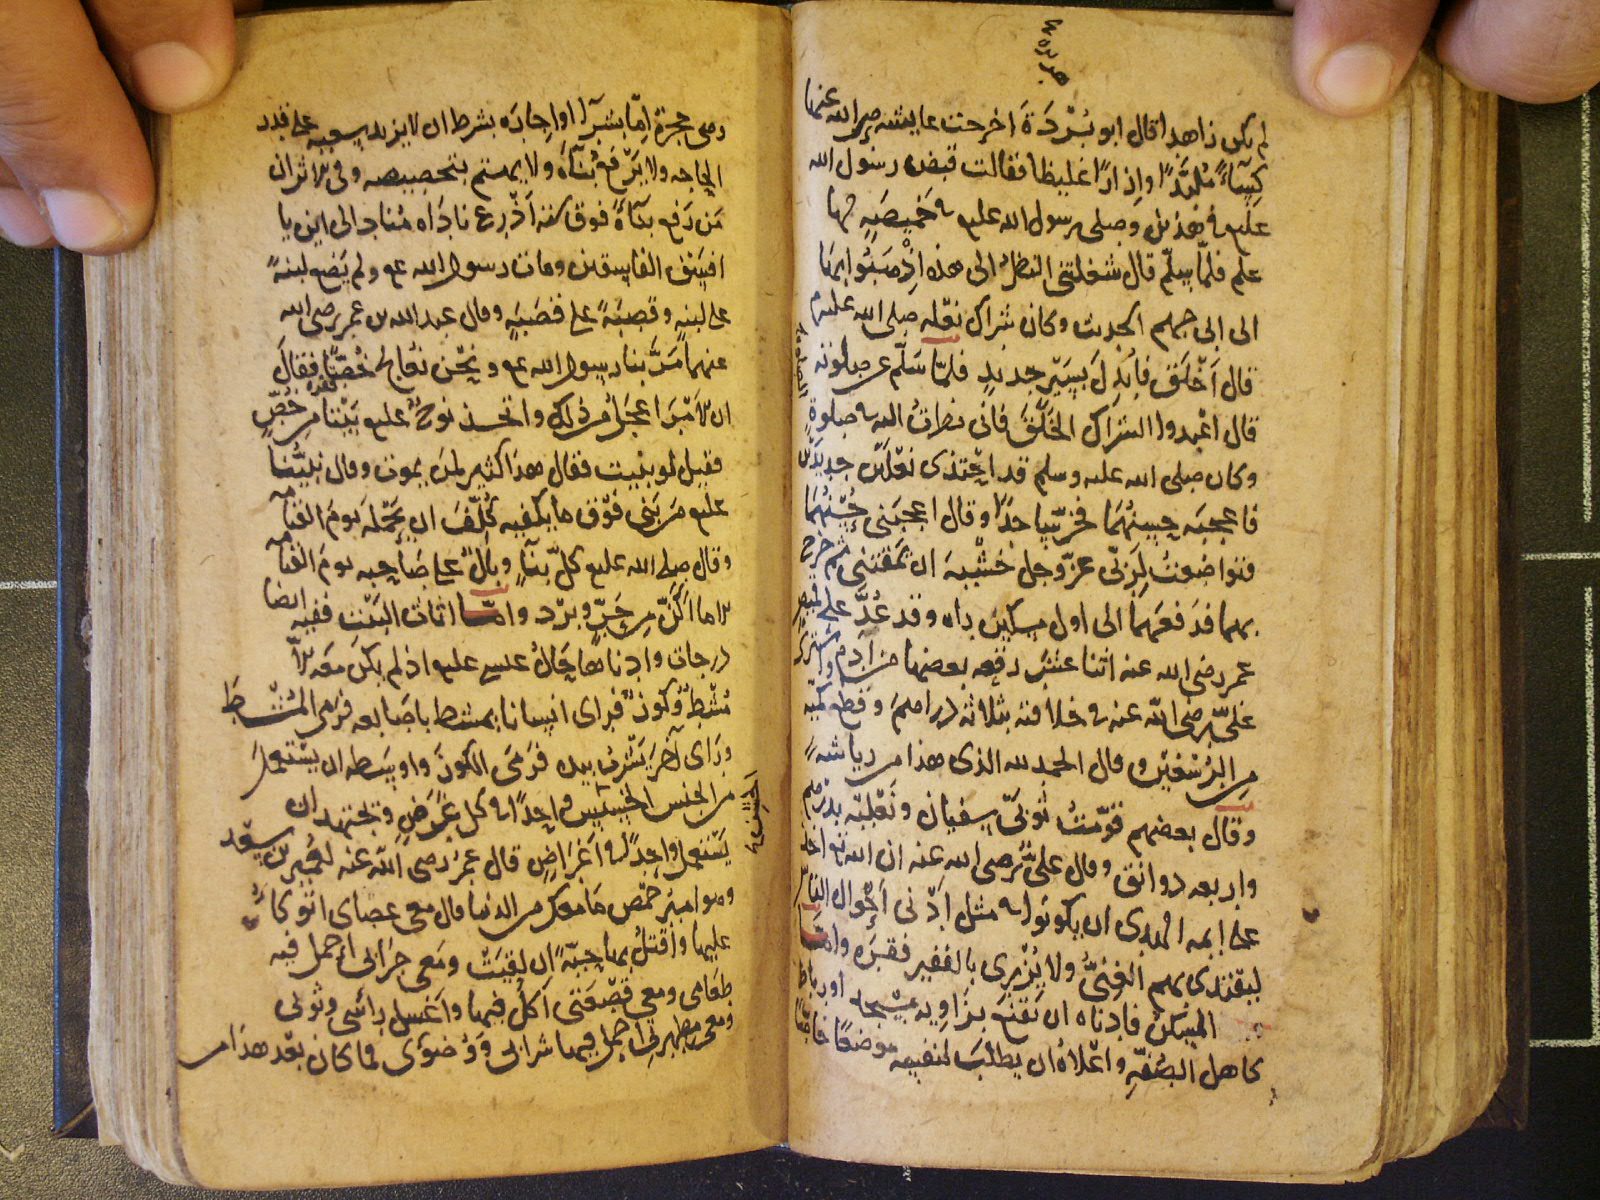 لم يكن زاهدا قال ابو بُرْدَةَ اخرجت عايشه رضى الله عنها
كِسَآءً مُلَبَّدًا وازارًا غليظا فقالت قبض رسول الله
عليه فى هذين وصلى رسول الله عليه فى خَميصَةٍ لها
علم فلمّا سلّم قال شغلتنى النظرُ الى هذه اذهبوا بها
الى ابى جهم الحديث وكان شراك نعْله صلى الله عليه
قال اَخْلَقَ فاُبْدِلَ بسَيْر جديدٍ فلمّا سَلّم عن صلوته
قال اعْيدوا الشراك الخَلَقَ فانى نظرتُ اليه فى صلوةٍ
وكان صلى الله عليه وسلم قد احْتذى نعْلَيْن جديدَيْن
فاعجبه حسنُهُمَا فخرّ ساجدًا وقال اعجبَنى حُسْنُهُمَا
فتواضعتُ لِرَبّى عزّ وجل خشْيةَ ان يَمْقتَنى ثم خرج
بهما فدَفعَهما الى اول مسكين راٰه وقد عُدَّ على قميص
عمر رضى الله عنه اثنا عشَرَ رقعه بعضها من اَدَم واشترى
علىّ رضى الله عنه فى خلافته بثلاثه دراهمَ وقطع كمَّيْه
من الرُّسْغَيْن وقال الحمد لله الذى هذا من رياشه
وقال بعضهم قوّمْتُ ثوبَىْ سفيان ونَعْلَيْه بدرْهم
واربعه دوانق وقال علىٌّ رضى الله عنه ان الله تع اخذ
على ايمه الهدى ان يكونوا فى مثل اَدْنى اَحْوال الناس
ليقتدى بهم الغنىُّ ولا يُزْرى بالفقير فقرَه وامّا
المسْكنُ فادناه ان يَقنَعَ بزاوِيه مسْجد او رباط
كاهل الصُّفّةِ واعْلاهُ ان يطلبَ لنفسه موْضعًا خاصًّا
رضى حجرة اِمّا بشرآ او اِجارَه بشرط ان لا يزيد سعته على قدر
الحاجه ولا يَرْفعَ بنآءَه ولا يهتم بتحصيصه وفى الاثر ان
مَن رَفع بنآءً فوق ستة اَذْرع ناداه مُنادٍ الى اين يا
افسَقَ الفاسقين ومات رسول الله عم ولم يَضع لبنةً
على لبنةٍ وقصبَةً على قصَبَةٍ وقال عبد الله بن عمر رضى الله
عنهما مَرَّ بنا رسول الله عم ونحْن نعالج خُصًّا فقالَ
ان الاَمْرَ اعجَلُ من ذلك واتخذ نوحٌ عليه بَيْتا من خُصٍّ
فقيل لو بنيت فقال هذا كثير لمَن يموت وقال نبيُّنا
عليه مَن بَنى فوْق ما يكفيه كُلّفَ ان يَحْمله يومَ القيامه
وقال صلى الله عليه كلّ بنآءٍ وبالٌ على صَاحبه يومَ القيامه
الا ما اَكَنَّ مِن حَرّ وبرْد وامّا اثاث البَيْت ففيه ايضا
درجات وادناها حَالُ عيسى عليه اذ لم يكن معَه الا
مُشْطٌ وكُوزٌ فراى انسانا يمشط باصَابعه فرَمى المُشْطَ
ورَاى آخرَ يَشْربُ بيده فرَمَى الكوزَ واوسَطه ان يسْتعملَ
من الجنس الخسيس واحِدًا فى كل غَرَضٍ ويجتهد ان
يَسْتعملَ واحِدًا فى اَغرَاضٍ قال عمَرُ رضى الله عنه لعُمَيْر بن سعْد
وهو امير حِمْص مَا معَك من الدنيا قال معى عصَاى اتوكاءُ
عليها واَقتلُ بها حيّةً ان لقيتُ ومَعى جرَابى اَحمل فيه
طعَامى ومعى قصْعَتى آكلُ فيها واَغسل رأسى وثوبى
ومعى مِطهرتى احملُ فيها شرابى ووُضوْى فما كان بعْد هذا من